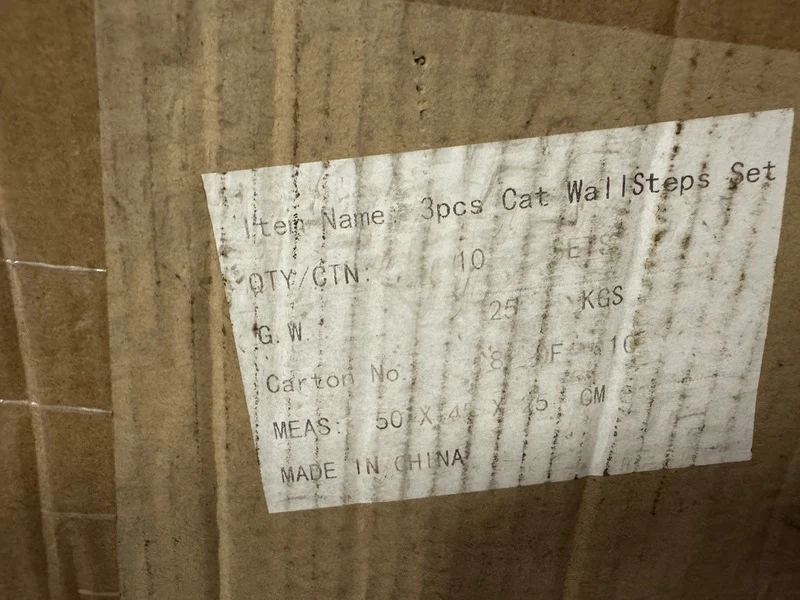 Item Name: 3pcs Cat WallSteps Set
QTY/CTN: 10 SETS
G.W. 25 KGS
Carton No. 8 OF 10
MEAS: 50 X X CM
MADE IN CHINA